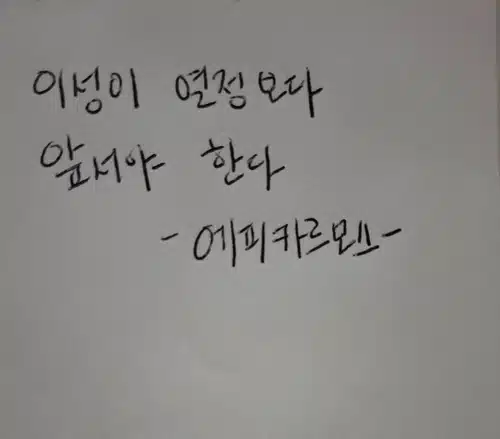 이성이 열정보다
앞서야 한다
-에피카르모스-